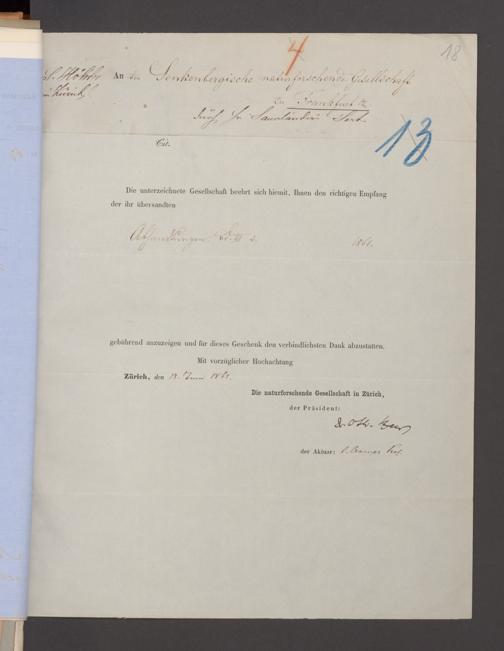 4
18
An die Senkenbergische naturforschende Gesellschaft
zu Frankfurt
13
Tit.
Die unterzeichnete Gesellschaft beehrt sich hiemit, Ihnen den richtigen Empfang
der ihr übersandten
Abhandlungen. Bd. III 2. 1861.
gebührend anzuzeigen und für dieses Geschenk den verbindlichsten Dank abzustatten.
Mit vorzüglicher Hochachtung
Zürich, den Juni 1861.
Die naturforschende Gesellschaft in Zürich,
der Präsident:
der Aktuar: C. Cramer Prof.